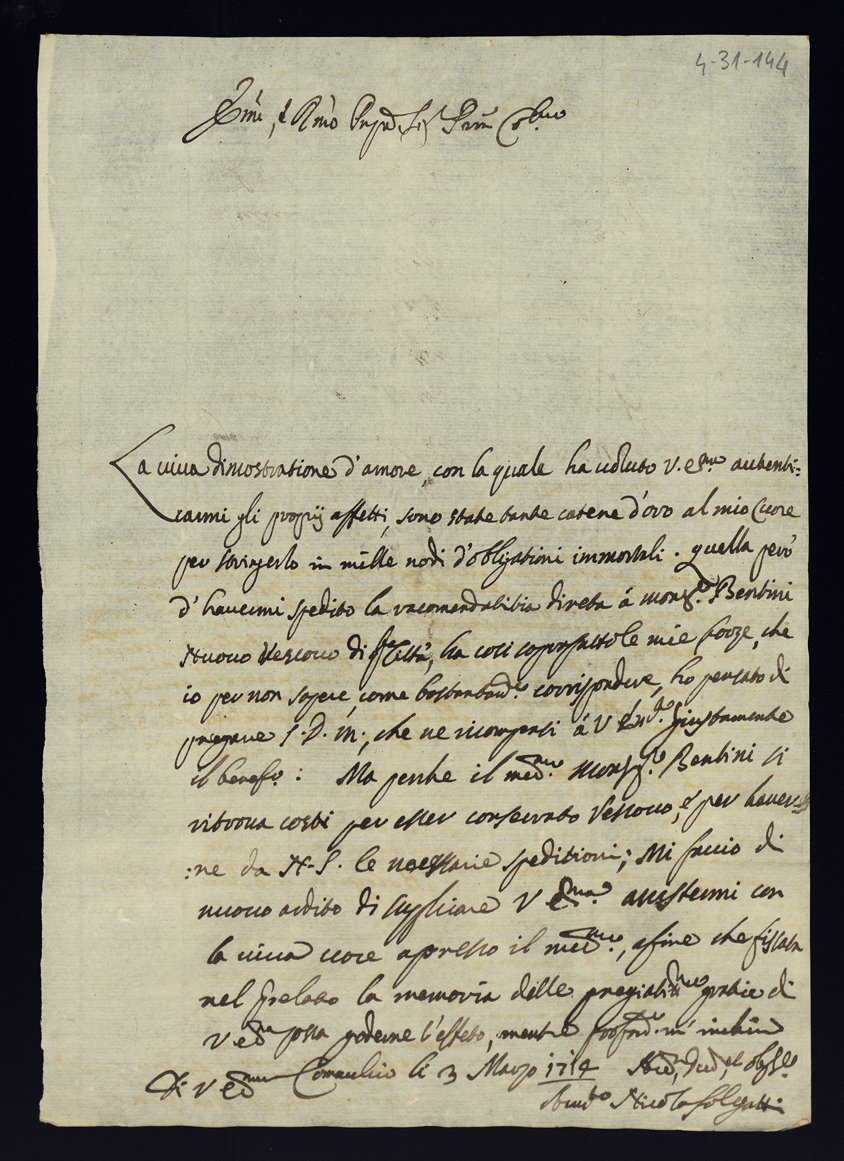 4-31-144
Emi, e Rmo
La viva dimostratione d'amore, con la quale ha voluto V. autenti=
carmi gli proprij affetti, sono state tante catene d'oro al mio Cuore
per stringerlo in mille nodi d'obligationi immortali. quella però
d'havermi spedito la racomandatitia direta á Monsr. Bentini
Nuovo Vescovo di Città, ha così soprafatto le mie forze, che
io per non sapere, come corrispondere, ho pensato di
pregare S. D. M., che ne ricompensi á V giustamente
il benefo: Ma perche il medmo. Monsr. Bentini si
ritrova costì per esser consecrato Vescovo, e per haver=
:ne da N. S. le necessarie speditioni; Mi faccio di
nuovo ardito di supplicare V Emza. assistermi con
la viva voce apresso il medmo., afine che fissata
nel Prelato la memoria delle pregiatme gratie di
V Em possa goderne l'effeto, mentre profond. m'inchino
Di V Comachio li 3 Marzo 1714
Nicola